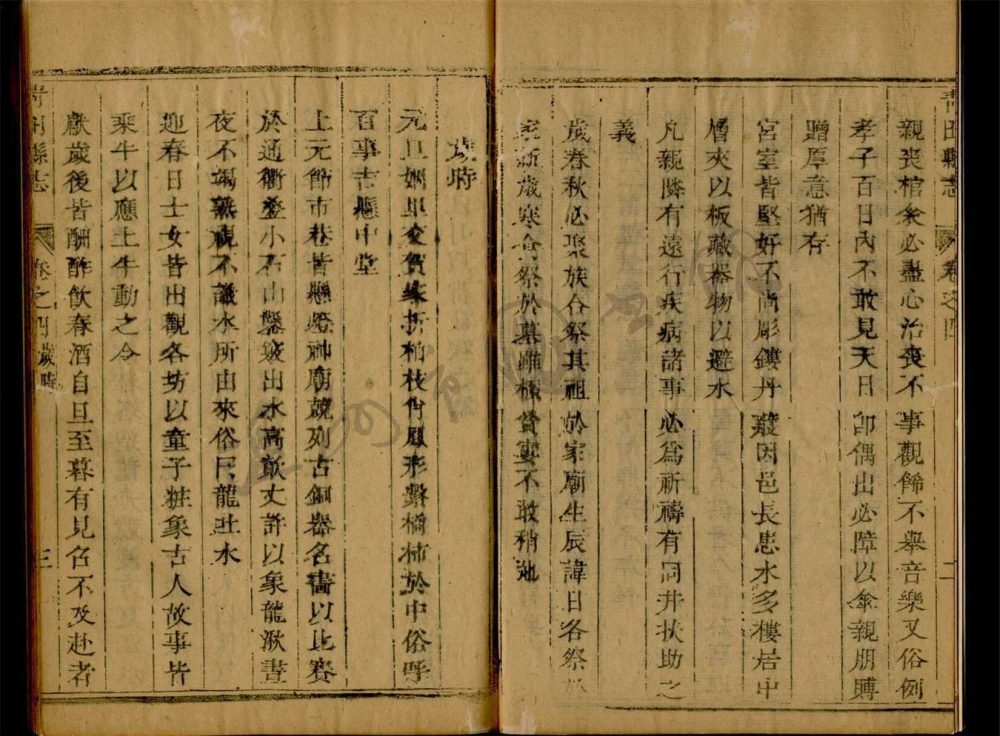 青田縣志
卷之四
二
親喪棺衾必盡心治喪不事觀餙不舉音樂又俗例
孝子百日內不敢見天日卽偶出必障以傘親朋賻
贈厚意猶存
宮室皆堅好不尚彫鏤丹雘因邑長患水多樓居中
層夾以板藏器物以避水
凡親隣有遠行疾病諸事必爲祈禱有同井扶助之
義
歲春秋必聚族合祭其祖於家廟生辰諱日各祭於
家新歲寒食祭於墓雖極貧窶不敢稍弛
歲時
元旦姻里交賀 折柏枝 屨形繫橘柿於中俗呼
百事吉懸中堂
上元節市巷皆懸燈神廟競列古銅器名畵以比賽
於通衢壘小石山鑿竅出水高數丈許以象龍湫晝
夜不竭縱觀不識水所由來俗曰龍吐水
迎春日士女皆出觀各坊以童子粧象古人故事皆
乘牛以應土牛動之令
獻歲後皆酬酢飮春酒自旦至暮有見召不及赴者
青田縣志
卷之四 歲時
三